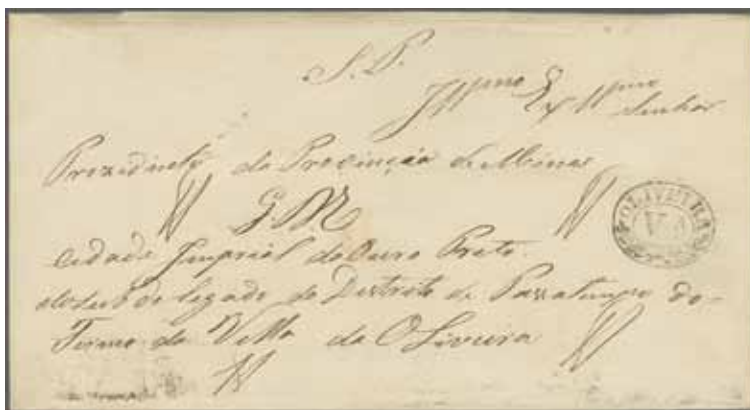 S. P.
Illmo Exmo
Senhor
Prezidente da Provincia de Minas
G. M.
Cidade Imperial do Ouro Preto.
do Sub de legado do Destrito de Passatempo do
Termo da Villa da Oliveira
OLIVEIRA